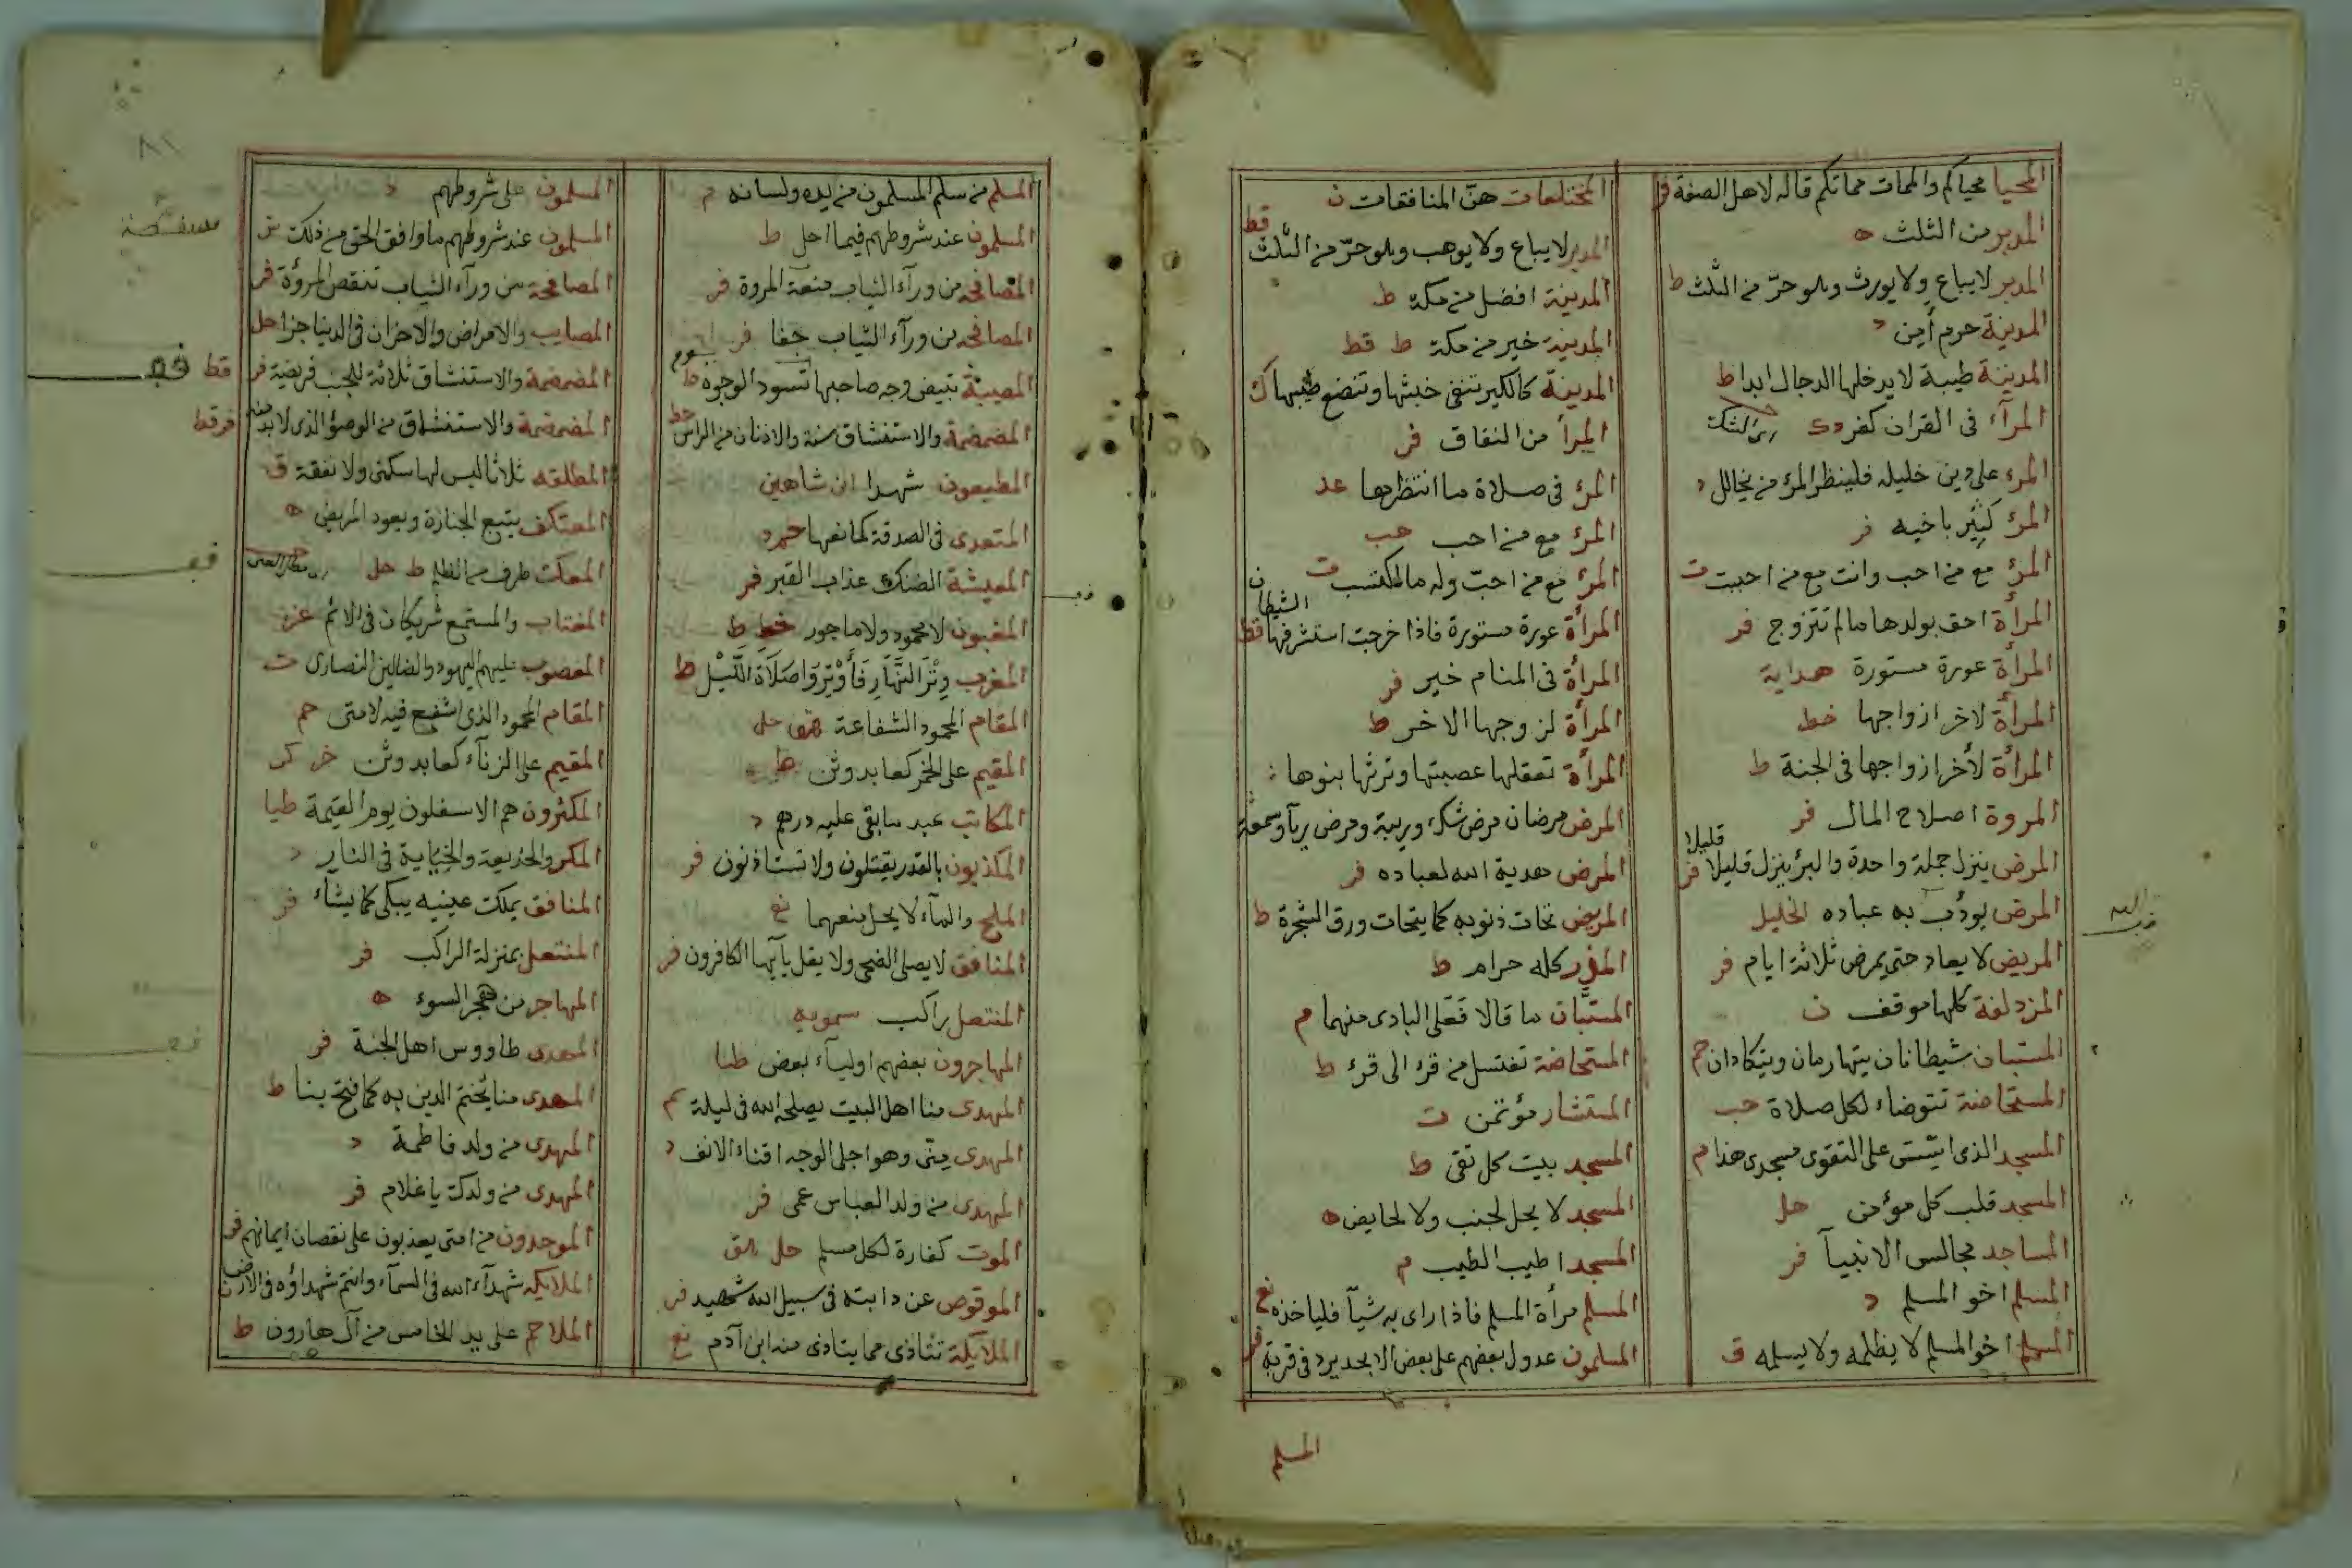 المحيا محياكم والممات مماتكم قاله لاهل الصفة فر
المدبر من الثلث ه
المدبر لا يباع ولا يورث وهو حرّ من الثلث ط
المدينة حرم آمن د
المدينة طيبة لا يدخلها الدجال ابدا ط
المرآء فى القران كفر دك
المرء على دين خليله فلينظر المرء من يخالل د
المرؤ كثير باخيه فر
المرؤ مع من احب وانت مع من احببت ت
المرأة احق بولدها ما لم تتزوج فر
المرأة عورة مستورة هداية
المرأة لاخر ازواجها خط
المرأة لأخر ازواجها فى الجنة ط
المروة اصلاح المال فر
المرض ينزل جملة واحدة والبرؤ ينزل قليلا قليلا فر
المرض يودب به عباده الخليل
المريض لا يعاد حتى يمرض ثلاثة ايام فر
المزدلفة كلها موقف ن
المستبان شيطانان يتهارمان ويتكادان حم
المستحاضة تتوضاء لكل صلاة حب
المسجد الذى اسّس على التقوى مسجدى هذا م
المسجد قلب كل مؤمن حل
المساجد مجالس الانبيآ فر
المسلم اخو المسلم د
المسلم اخو المسلم لا يظلمه ولا يسلمه ق
المختلعات هنّ المنافقات ن
المدبر لا يباع ولا يوهب وهو حرّ من الثلث قط
المدينة افضل من مكة ط
المدينة خير من مكة ط قط
المدينة كالكير تنفى خبثها وتنصع طيبها ك
المرأ من النفاق فر
المرؤ فى صلاة ما انتظرها عد
المرؤ مع من احب حب
المرؤ مع من احبّ وله ما اكتسب ت
المرأة عورة مستورة فاذا خرجت استشرفها الشيطان قط
المرأة فى المنام خير فر
المرأة لزوجها الاخر ط
المرأة تعقلها عصبتها وترثها بنوها
المرض مرضان مرض شك وريبة ومرض ريآ وسمعة
المرض هدية الله لعباده فر
المريض تحات ذنوبه كما يتحات ورق الشجرة ط
المزر كله حرام ط
المستبّان ما قالا فعلى البادى منهما م
المستحاضة تغتسل من قرء الى قرء ط
المستشار مؤتمن ت
المسجد بيت كل تقى ط
المسجد لا يحل لجنب ولا لحايض ه
المسجد اطيب الطيب م
المسلم مرأة المسلم فاذا راى به شيآ فلياخذه نع
المسلمون عدول بعضهم على بعض الا محدود فى قرية فر
المسلم
المسلم من سلم المسلمون من يده ولسانه م
المسلمون عند شروطهم فيما احل ط
المصافحة من ورآء الثياب منقصة المروة فر
المصافحة من ورآء الثياب جفا فر
المصيبة تبيض وجه صاحبها يوم تسود الوجوه ط
المضمضة والاستنشاق سنة والاذنان من الراس خط
المطيعون شهدا ابن شاهين
المتعدى فى الصدقة كمانعها حم د
المعيشة الضنك عذاب القبر فر
المغبون لا محمود ولا ماجور خط ط
المغرب وتر النهار فأوتروا صلاة الليل ط
المقام المحمود الشفاعة حل
المقيم على الخمر كعابد وثن ط
المكاتب عبد ما بقى عليه درهم د
المكذبون بالقدر يقتلون ولا تستاذنون فر
الملح والمآء لا يحل منعهما نع
المنافق لا يصلى الضحى ولا يقل يآيها الكافرون فر
المنتعل راكب سمويه
المهاجرون بعضهم اوليآء بعض طيا
المهدى منا اهل البيت يصلحه الله فى ليلة حم
المهدى منّى وهو اجلى الوجه اقناء الانف د
المهدى من ولد العباس عمى فر
الموت كفارة لكل مسلم حل هق
الموقوص عن دابته فى سبيل الله شهيد فر
الملآيكة تتاذى مما يتاذى منه ابن آدم نع
المسلمون على شروطهم د
المسلمون عند شروطهم ما وافق الحق من ذلك ش
المصافحة من ورآء الثياب تنقص المروءة فر
المصايب والامراض والاحزان فى الدنيا جزا حل
المضمضة والاستنشاق ثلاثة للجنب فريضة فر قط
المضمضة والاستنشاق من الوضؤ الذى لابد منه فر قط
المطلقه ثلاثا ليس لها سكنى ولا نفقة ق
المعتكف يتبع الجنازة ويعود المريض ه
المعك طرف من الظلم ط حل
المغتاب والمستمع شريكان فى الاثم غز
المغضوب عليهم اليهود والضالين النصارى ت
المقام المحمود الذى اشفع فيه لامتى حم
المقيم على الزنآء كعابد وثن خر كر
المكثرون هم الاسفلون يوم القيمة طيا
المكر والخديعة والخيانة فى النار د
المنافق يملك عينيه يبكى كما يشاء فر
المنتعل بمنزلة الراكب فر
المهاجر من هجر السوء ه
المهدى طاووس اهل الجنة فر
المهدى منا يختم الدين به كما فتح بنا ط
المهدى من ولد فاطمة د
المهدى من ولدك يا غلام فر
الموحدون من امتى يعذبون على نقصان ايمانهم فر
الملايكه شهدآء الله فى السمآء وانتم شهداؤه فى الارض ن
الملاحم على يد الخامس من آل هارون ط